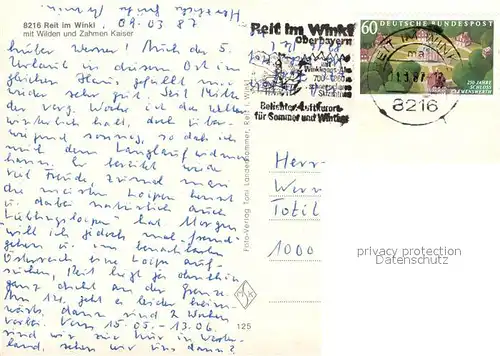 Herzliche Grüße
8216 Reit im Winkl
mit Wilden und Zahmen Kaiser
09.03.87
Lieber Werner! Auch der 5.
Urlaub in diesem Ort im
gleichen Haus, gefällt mir
wieder sehr gut. Seit Mitte
der vorg. Woche ist das Wetter
winterlich kalt, doch über-
wiegend sonnig, so daß ich
mich dem Langlauf widmen
kann. Er bereitet wieder
viel Freude, zumal man
die meisten Loipen kennt
u. dabei natürlich auch
"Lieblingsloipen" hat. Morgen
will ich jedoch mal "fremd"
gehen u. im benachbarten
Österreich eine Loipe auf-
suchen, Reit liegt ja ohnehin
ganz dicht an der Grenze.
Am 14. geht es leider heim-
wärts, dann sind 2 Wochen
vorbei. Vom 15.05. - 13.06.
sind wir
land, sehen wir uns dann?
Foto-Verlag Toni Landenhammer, Reit i. Winkl
125
Reit im Winkl
Oberbayern
700
Beliebter Luftkurort
für Sommer und Winter
60
DEUTSCHE BUNDESPOST
250 JAHRE
SCHLOSS
CLEMENSWERTH
REIT IM WINKL
8216
Herr
Wern
Totil
1000
privacy protection
Datenschutz